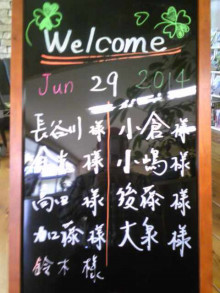 Welcome
Jun 29 2014
長谷川 様 小倉 様
様 小嶋 様
向田 様 後藤 様
加藤 様 大泉 様
鈴木 様